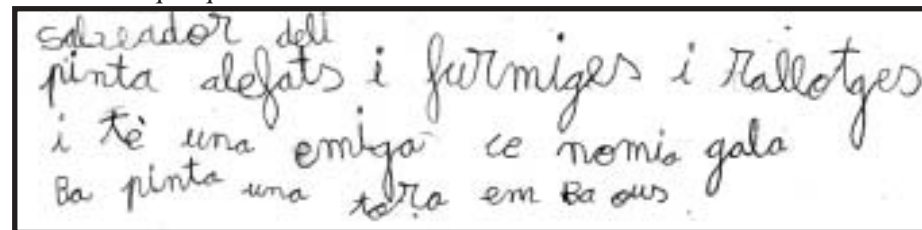 salbador deli
pinta alefats i furmiges i rallotges
i tè una emiga ce nomia gala
Ba pinta una tora em Ba ous